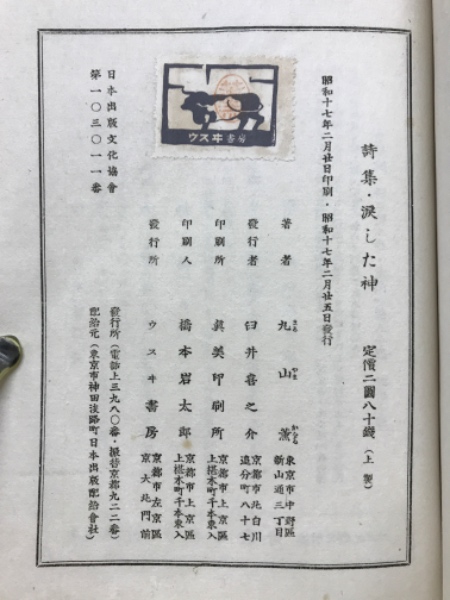 詩集・涙した神 定價二圓八十錢(上製)
昭和十七年二月廿日印刷・昭和十七年二月廿五日發行
ウスヰ書房
著者 丸山薫 東京市中野區新山通三丁目
まる やま かをる
發行者 臼井喜之介 京都市北白川追分町八十七
印刷所 眞美印刷所 京都市上京區上椹木町千本東入
印刷人 橋本岩太郎 京都市上京區上椹木町千本東入
發行所 ウスヰ書房 京都市左京區京大北門前
日本出版文化協會
第一〇三〇一一番
發行所(電話上三九八〇番・振替京都九二二番)
配給元(東京市神田淡路町日本出版配給會社)